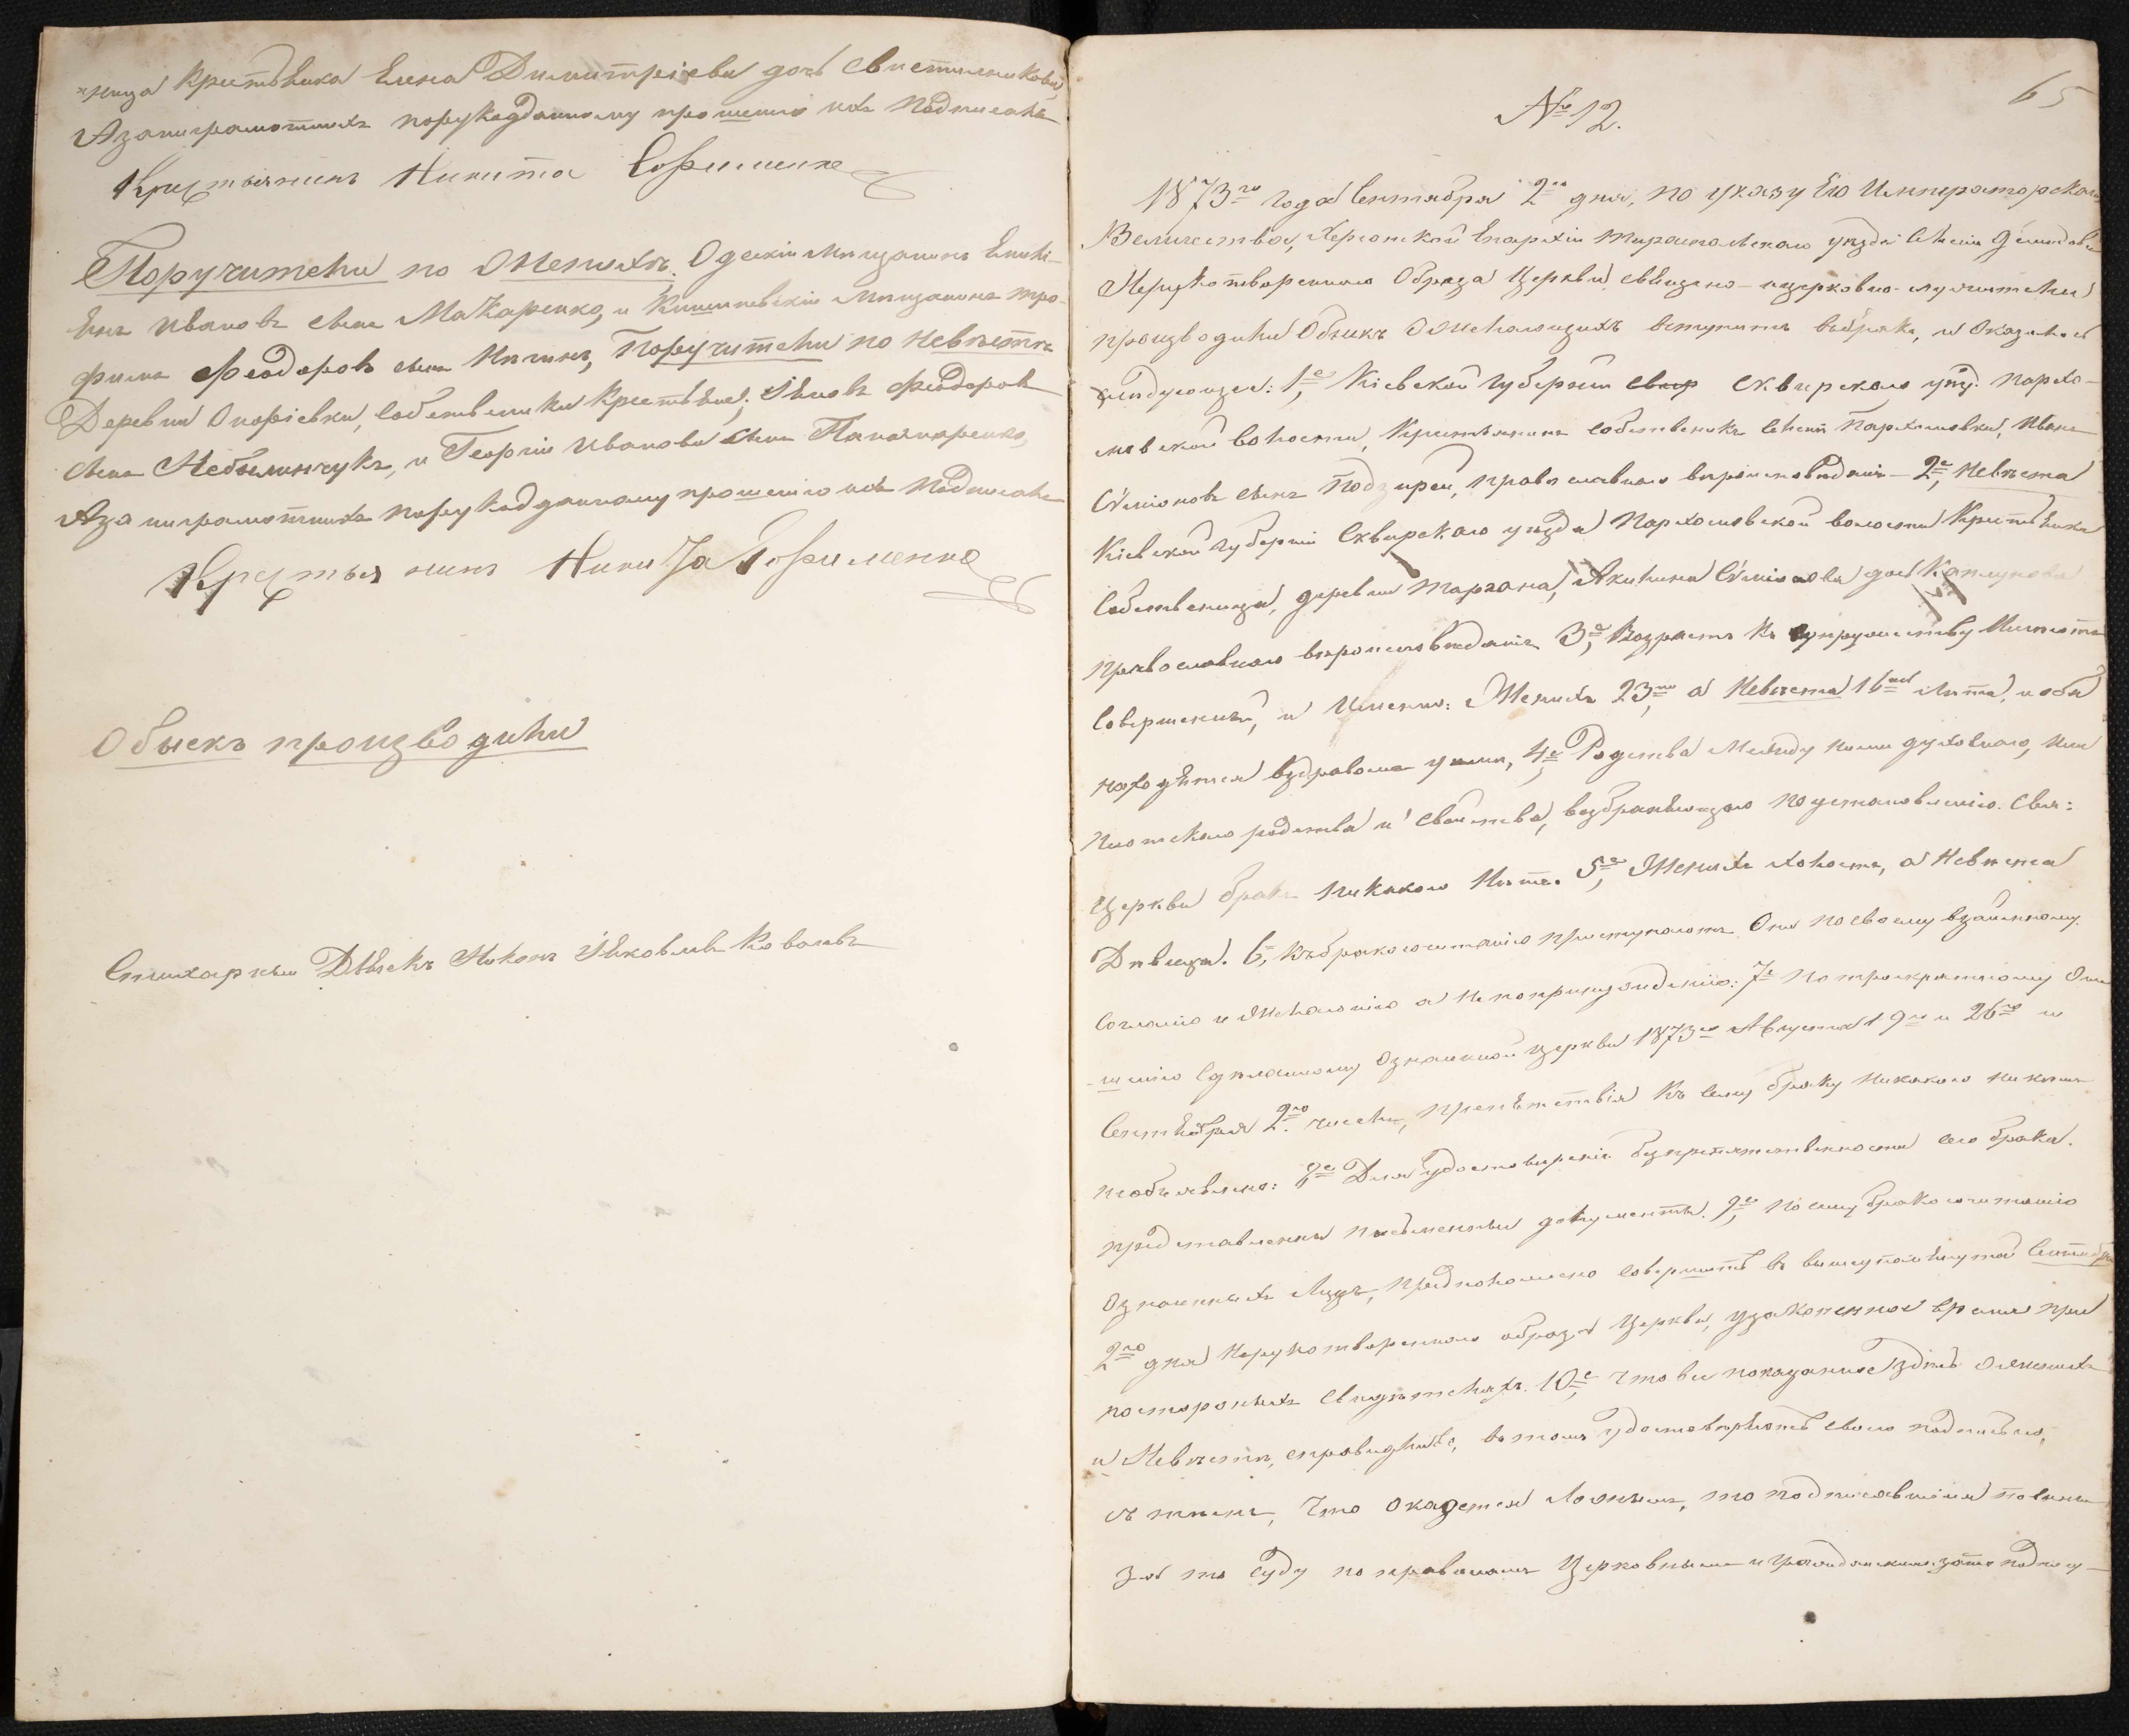 -ница Крестьянка Елена Димитріева дочь Свистильникова,
А за ниграмотныхъ порукоданному прошенію ихъ подписалъ
Крестьянинъ Никита Ефименко
Поручители по Женихѣ, Одескій Мищанинъ Емилі-
янъ Ивановъ сынъ Макаренко, и Кишиневскій Мищанинъ Тро-
фимъ Феодоровъ сынъ Поручители по Невѣстѣ
Деревни Онофріевки, собственники Крестьяне; Іяковъ Феодоровъ
сынъ Небылинчукъ, и Георгій Ивановъ сынъ
А за ниграмотныхъ порукоданному прошенію ихъ подписалъ
Крестьянинъ Никита Ефименко
Обыскъ производили
Стихарный Дьячекъ Яковлевъ
65
№ 12.
1873го года Сентября 2го дня, по указу Его Императорскаго
Величества, Херсонской Епархіи Тираспольскаго уѣзда села
Нерукотвореннаго Образа Церкви, священо-церковно-служители
производили обыскъ о желающихъ вступить въ бракъ, и оказалось
слѣдующее: 1е, Кіевской губерніи сквир Сквирскаго уѣзд. Пархо-
мовской волости, Крестьянинъ собственикъ села Пархомовки, Иванъ
Симіоновъ сынъ православнаго вѣроисповѣданія – 2е, Невѣста
Кіевской губерніи Сквирскаго уѣзда Пархомовской волости Крестьянка
собственица, деревни Таргана, Акилина Симіонова дочь Каплунова
православнаго вѣроисповѣданія 3е, Возрастъ къ супружеству имѣютъ
совершенный, и именно: Женихъ 23хъ, а Невѣста 16ть лѣтъ, и оба
находятся въ здравомъ умѣ, 4е, Родства между ними духовнаго, или
плотскаго родства и свойства, возбраняющаго по установленію Свят:
Церкви бракъ никакого нѣтъ. 5е, Женихъ холостъ, а Невѣста
Дѣвица. 6, Къ бракосочитанію приступаютъ они по своему взаимному
согласію и желанію а не по принужденію: 7е По троекратному огла
-шенію сдѣланному означенной церкви 1873го Августа 19го и 26го и
Сентября 2го числа, препятствія къ сему браку никакого никѣмъ
не объявлено: 8е Для удостовѣренія безпрепятственности сего брака
представлены письменныя документы. 9е, по сему бракосочитанію
означенныхъ лицъ, предположено совершить въ вышеупомянутой Сентября
2го дня Нерукотвореннаго образа Церкви, узаконенное время при
посторонихъ свидѣтеляхъ. 10е, что все показанное здѣсь о женихѣ
и Невѣстѣ, справедливо, въ томъ удостовѣряютъ своею подписью,
съ тѣмъ, что окажется ложнымъ, то подписавшіися повинны
за то суду по правиламъ Церковнымъ и гражданскимъ